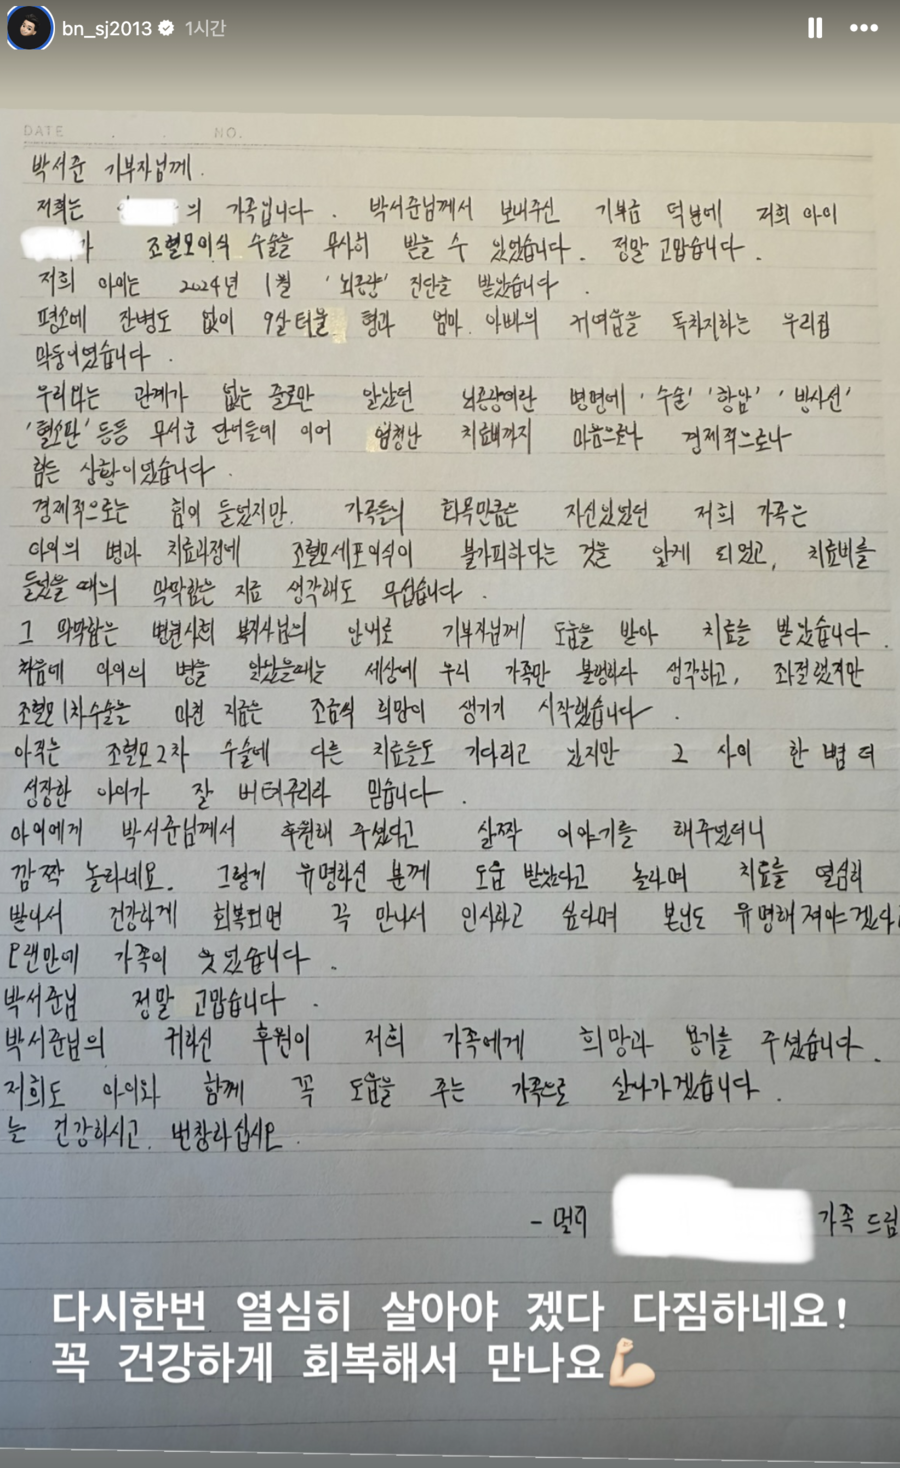 bn_sj2013 1시간
DATE . . NO.
박서준 기부자님께.
저희는 의 가족입니다. 박서준님께서 보내주신 기부금 덕분에 저희 아이
가 조혈모이식 수술을 무사히 받을 수 있었습니다. 정말 고맙습니다.
저희 아이는 2024년 1월 '뇌종양' 진단을 받았습니다.
평소에 잔병도 없이 9살터울 형과 엄마 아빠의 귀여움을 독차지하는 우리집
막둥이였습니다.
우리와는 관계가 없는 줄로만 알았던 뇌종양이란 병명에 '수술' '항암' '방사선'
'혈소판' 등등 무서운 단어들에 이어 엄청난 치료비까지 마음으로나 경제적으로나
힘든 상황이었습니다.
경제적으로는 힘이 들었지만, 가족들의 화목만큼은 자신있었던 저희 가족은
아이의 병과 치료과정에 조혈모세포이식이 불가피하다는 것을 알게 되었고, 치료비를
들었을 때의 막막함은 지금 생각해도 무섭습니다.
그 막막함은 병원사회 복지사님의 안내로 기부자님께 도움을 받아 치료를 받았습니다.
처음에 아이의 병을 알았을때는 세상에 우리 가족만 불행하다 생각하고, 좌절했지만
조혈모 1차수술을 마친 지금은 조금씩 희망이 생기기 시작했습니다.
아직은 조혈모 2차 수술에 다른 치료들도 기다리고 있지만 그 사이 한 뼘 더
성장한 아이가 잘 버텨주리라 믿습니다.
아이에게 박서준님께서 후원해 주셨다고 살짝 이야기를 해주었더니
깜짝 놀라네요. 그렇게 유명하신 분께 도움 받았다고 놀라며 치료를 열심히
받아서 건강하게 회복되면 꼭 만나서 인사하고 싶다며 본인도 유명해져야겠다
오랜만에 가족이 웃었습니다.
박서준님 정말 고맙습니다.
박서준님의 귀하신 후원이 저희 가족에게 희망과 용기를 주셨습니다.
저희도 아이와 함께 꼭 도움을 주는 가족으로 살아가겠습니다.
늘 건강하시고, 번창하십시오.
- 멀리 가족 드림
다시한번 열심히 살아야 겠다 다짐하네요!
꼭 건강하게 회복해서 만나요💪🏻